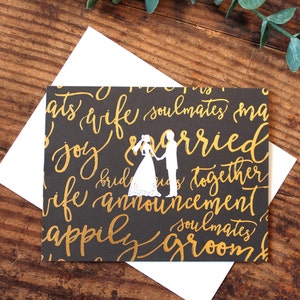 wife soulmates
joy married
together
wife announcement
soulmates
happily groom